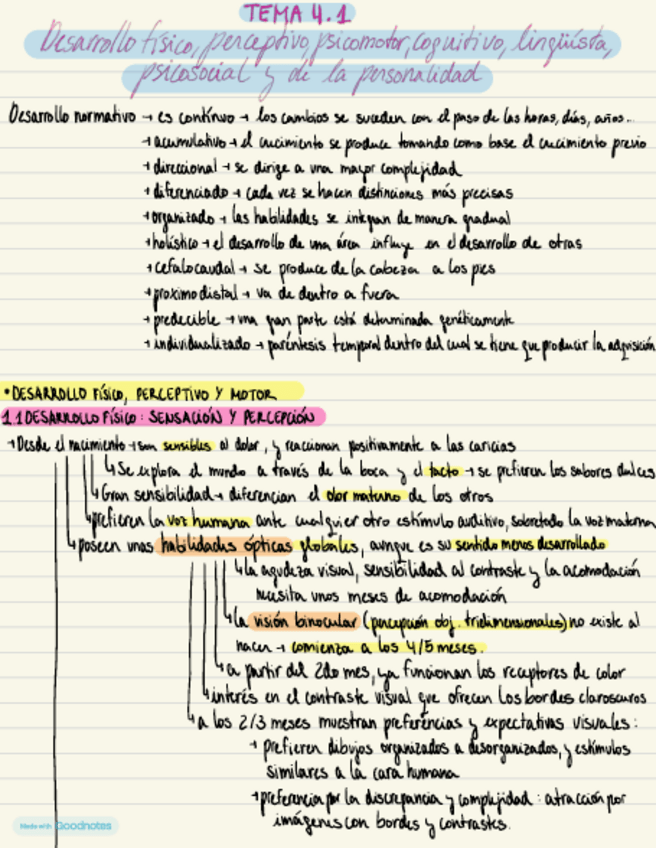 TEMA 4.1
Desarrollo físico, perceptivo, psicomotor, cognitivo, lingüísta,
psicosocial y de la personalidad
Desarrollo normativo → es contínuo → los cambios se suceden con el paso de las horas, días, años...
→ acumulativo → el crecimiento se produce tomando como base el crecimiento previo
→ direccional → se dirige a una mayor complejidad
→ diferenciado → cada vez se hacen distinciones más precisas
→ organizado → las habilidades se integran de manera gradual
→ holístico → el desarrollo de una área influye en el desarrollo de otras
→ cefalocaudal → se produce de la cabeza a los pies
→ proximodistal → va de dentro a fuera
→ predecible → una gran parte está determinada genéticamente
→ individualizado → paréntesis temporal dentro del cual se tiene que producir la adquisición
• DESARROLLO FÍSICO, PERCEPTIVO Y MOTOR
1.1 DESARROLLO FÍSICO: SENSACIÓN Y PERCEPCIÓN
→ Desde el nacimiento → son sensibles al dolor, y reaccionan positivamente a las caricias
↳ Se explora el mundo a través de la boca y el tacto → se prefieren los sabores dulces
↳ Gran sensibilidad → diferencian el olor materno de los otros
↳ prefieren la voz humana ante cualquier otro estímulo auditivo, sobretodo la voz materna
↳ poseen unas habilidades ópticas globales, aunque es su sentido menos desarrollado
↳ la agudeza visual, sensibilidad al contraste y la acomodación
necesita unos meses de acomodación
↳ la visión binocular (percepción obj. tridimensionales) no existe al
nacer → comienza a los 4/5 meses.
↳ a partir del 2do mes, ya funcionan los receptores de color
↳ interés en el contraste visual que ofrecen los bordes claroscuros
↳ a los 2/3 meses muestran preferencias y expectativas visuales:
→ prefieren dibujos organizados a desorganizados, y estímulos
similares a la cara humana
→ preferencia por la discrepancia y complejidad: atracción por
imágenes con bordes y contrastes.
Made with Goodnotes